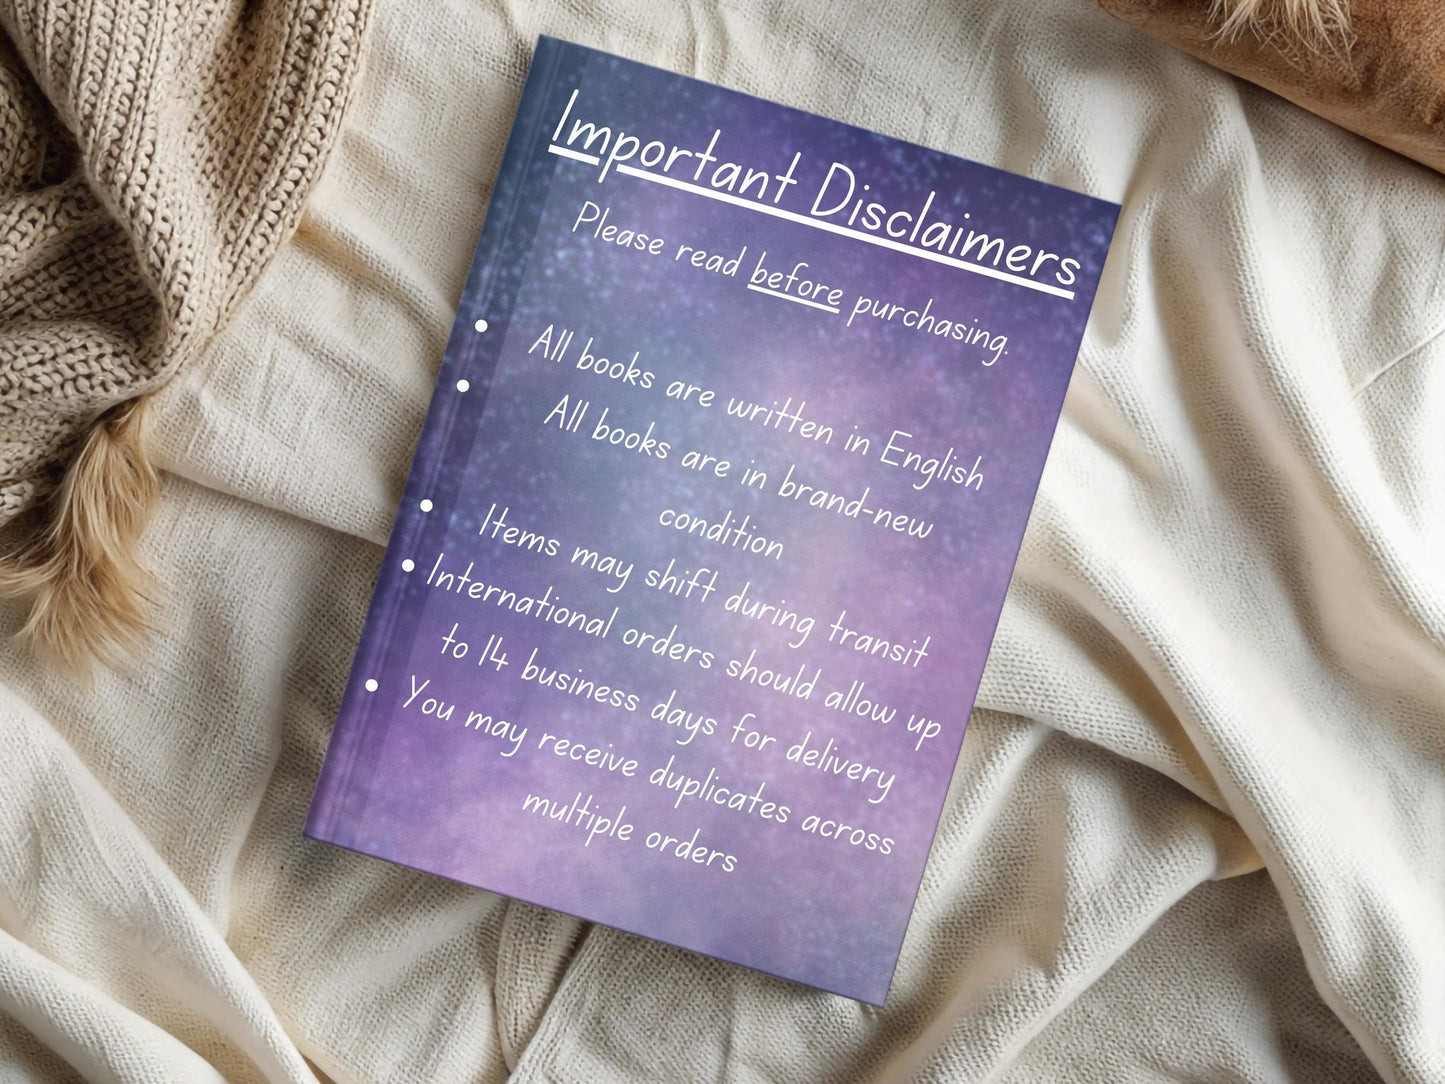 Important Disclaimers
Please read before purchasing.
• All books are written in English
• All books are in brand-new
condition
• Items may shift during transit
• International orders should allow up
to 14 business days for delivery
• You may receive duplicates across
multiple orders